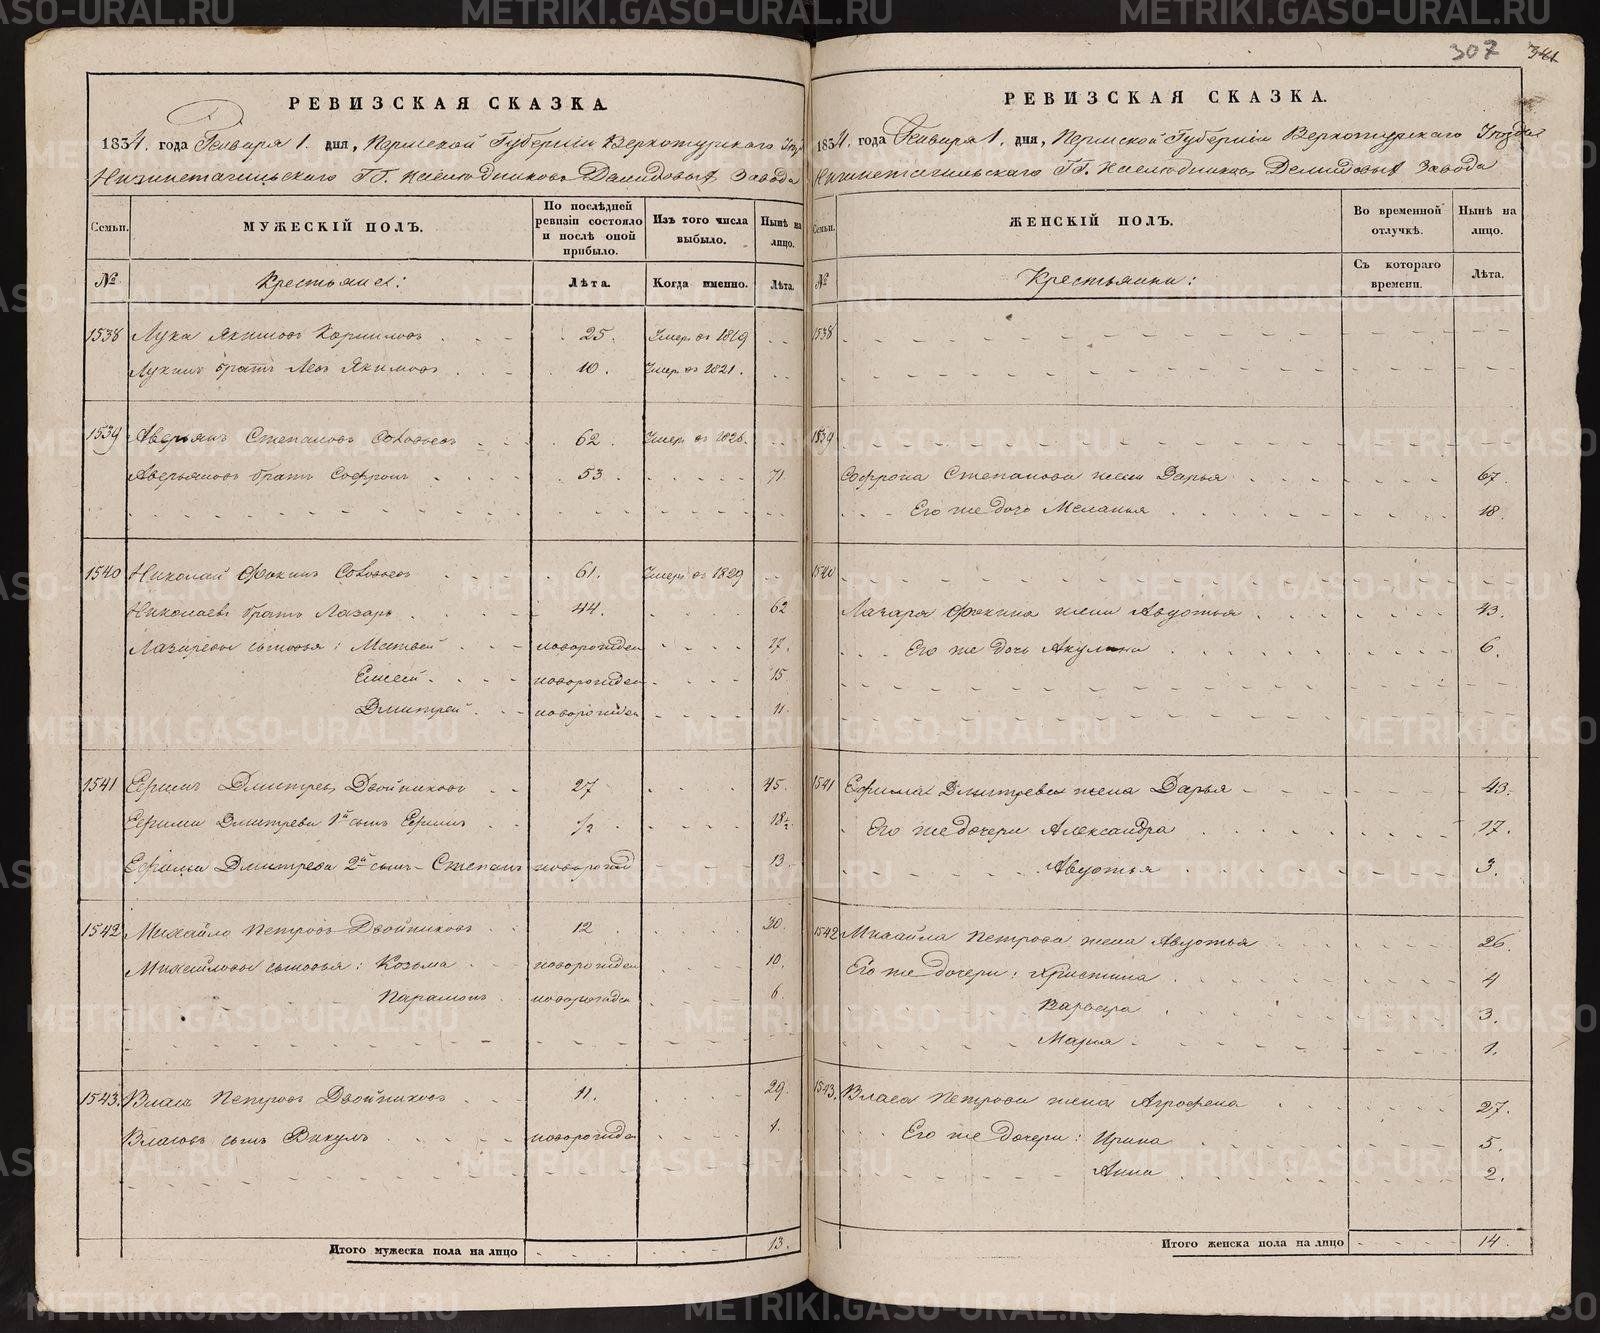 307 341
РЕВИЗСКАЯ СКАЗКА.
1834. года Генваря 1. дня, Пермской Губернiи Верхотурскаго Уѣзда
Нижнетагильскаго ГГ. Наслѣдниковъ Демидовыхъ завода
Семьи.
МУЖЕСКIЙ ПОЛЪ.
По послѣдней ревизiи состояло и послѣ оной прибыло.
Изъ того числа выбыло.
Нынѣ на лицо.
№
Крестьяне:
Лѣта.
Когда именно.
Лѣта.
1538 Лука Якимовъ 25. Умер. въ 1819
Лукинъ братъ Левъ Якимовъ 10. Умер. въ 1821.
1539 Аверьянъ Степановъ Соловьевъ 62 Умер. въ 1826.
Аверьяновъ братъ Софронъ 53 71
1540 Николай Фокинъ Соловьевъ 61. Умер. въ 1829
Николаевъ братъ Лазарь 44. 62
Лазаревы сыновья: Матвей новорожден 27.
Елисей новорожден 15
Дмитрей новорожден 11.
1541 Ефимъ Дмитрев Двойниковъ 27 45.
Ефима Дмитрева 1й сынъ Ефимъ 1/2 18 1/2
Ефима Дмитрева 2й сынъ Степанъ новорожд 13
1542 Михайло Петровъ Двойниковъ 12 30
Михайловы сыновья: Козьма новорожден 10.
Парамонъ новорожден 6
1543. Власъ Петровъ Двойниковъ 11. 29
Власовъ сынъ Викулъ новорожден 1.
Итого мужеска пола на лицо 13.
РЕВИЗСКАЯ СКАЗКА.
1834. года Генваря 1. дня, Пермской Губернiи Верхотурскаго Уѣзда
Нижнетагильскаго ГГ. Наслѣдниковъ Демидовыхъ завода
Семьи.
ЖЕНСКIЙ ПОЛЪ.
Во временной отлучкѣ.
Нынѣ на лицо.
№
Крестьянки:
Съ котораго времени.
Лѣта.
1538
1539
Софрона Степанова жена Дарья 67.
Его же дочь Меланья 18.
1540
Лазаря Фокина жена Авдотья 43.
Его же дочь Акулина 6.
1541 Ефима Дмитрева жена Дарья 43.
Его же дочери Александра 17.
Авдотья 3.
1542 Михайла Петрова жена Авдотья 26.
Его же дочери: Христина 4
Варвара 3.
Марья 1.
1543. Власа Петрова жена Агрофена 27.
Его же дочери: Ирина 5.
Анна 2.
Итого женска пола на лицо 14.
METRIKI.GASO-URAL.RU